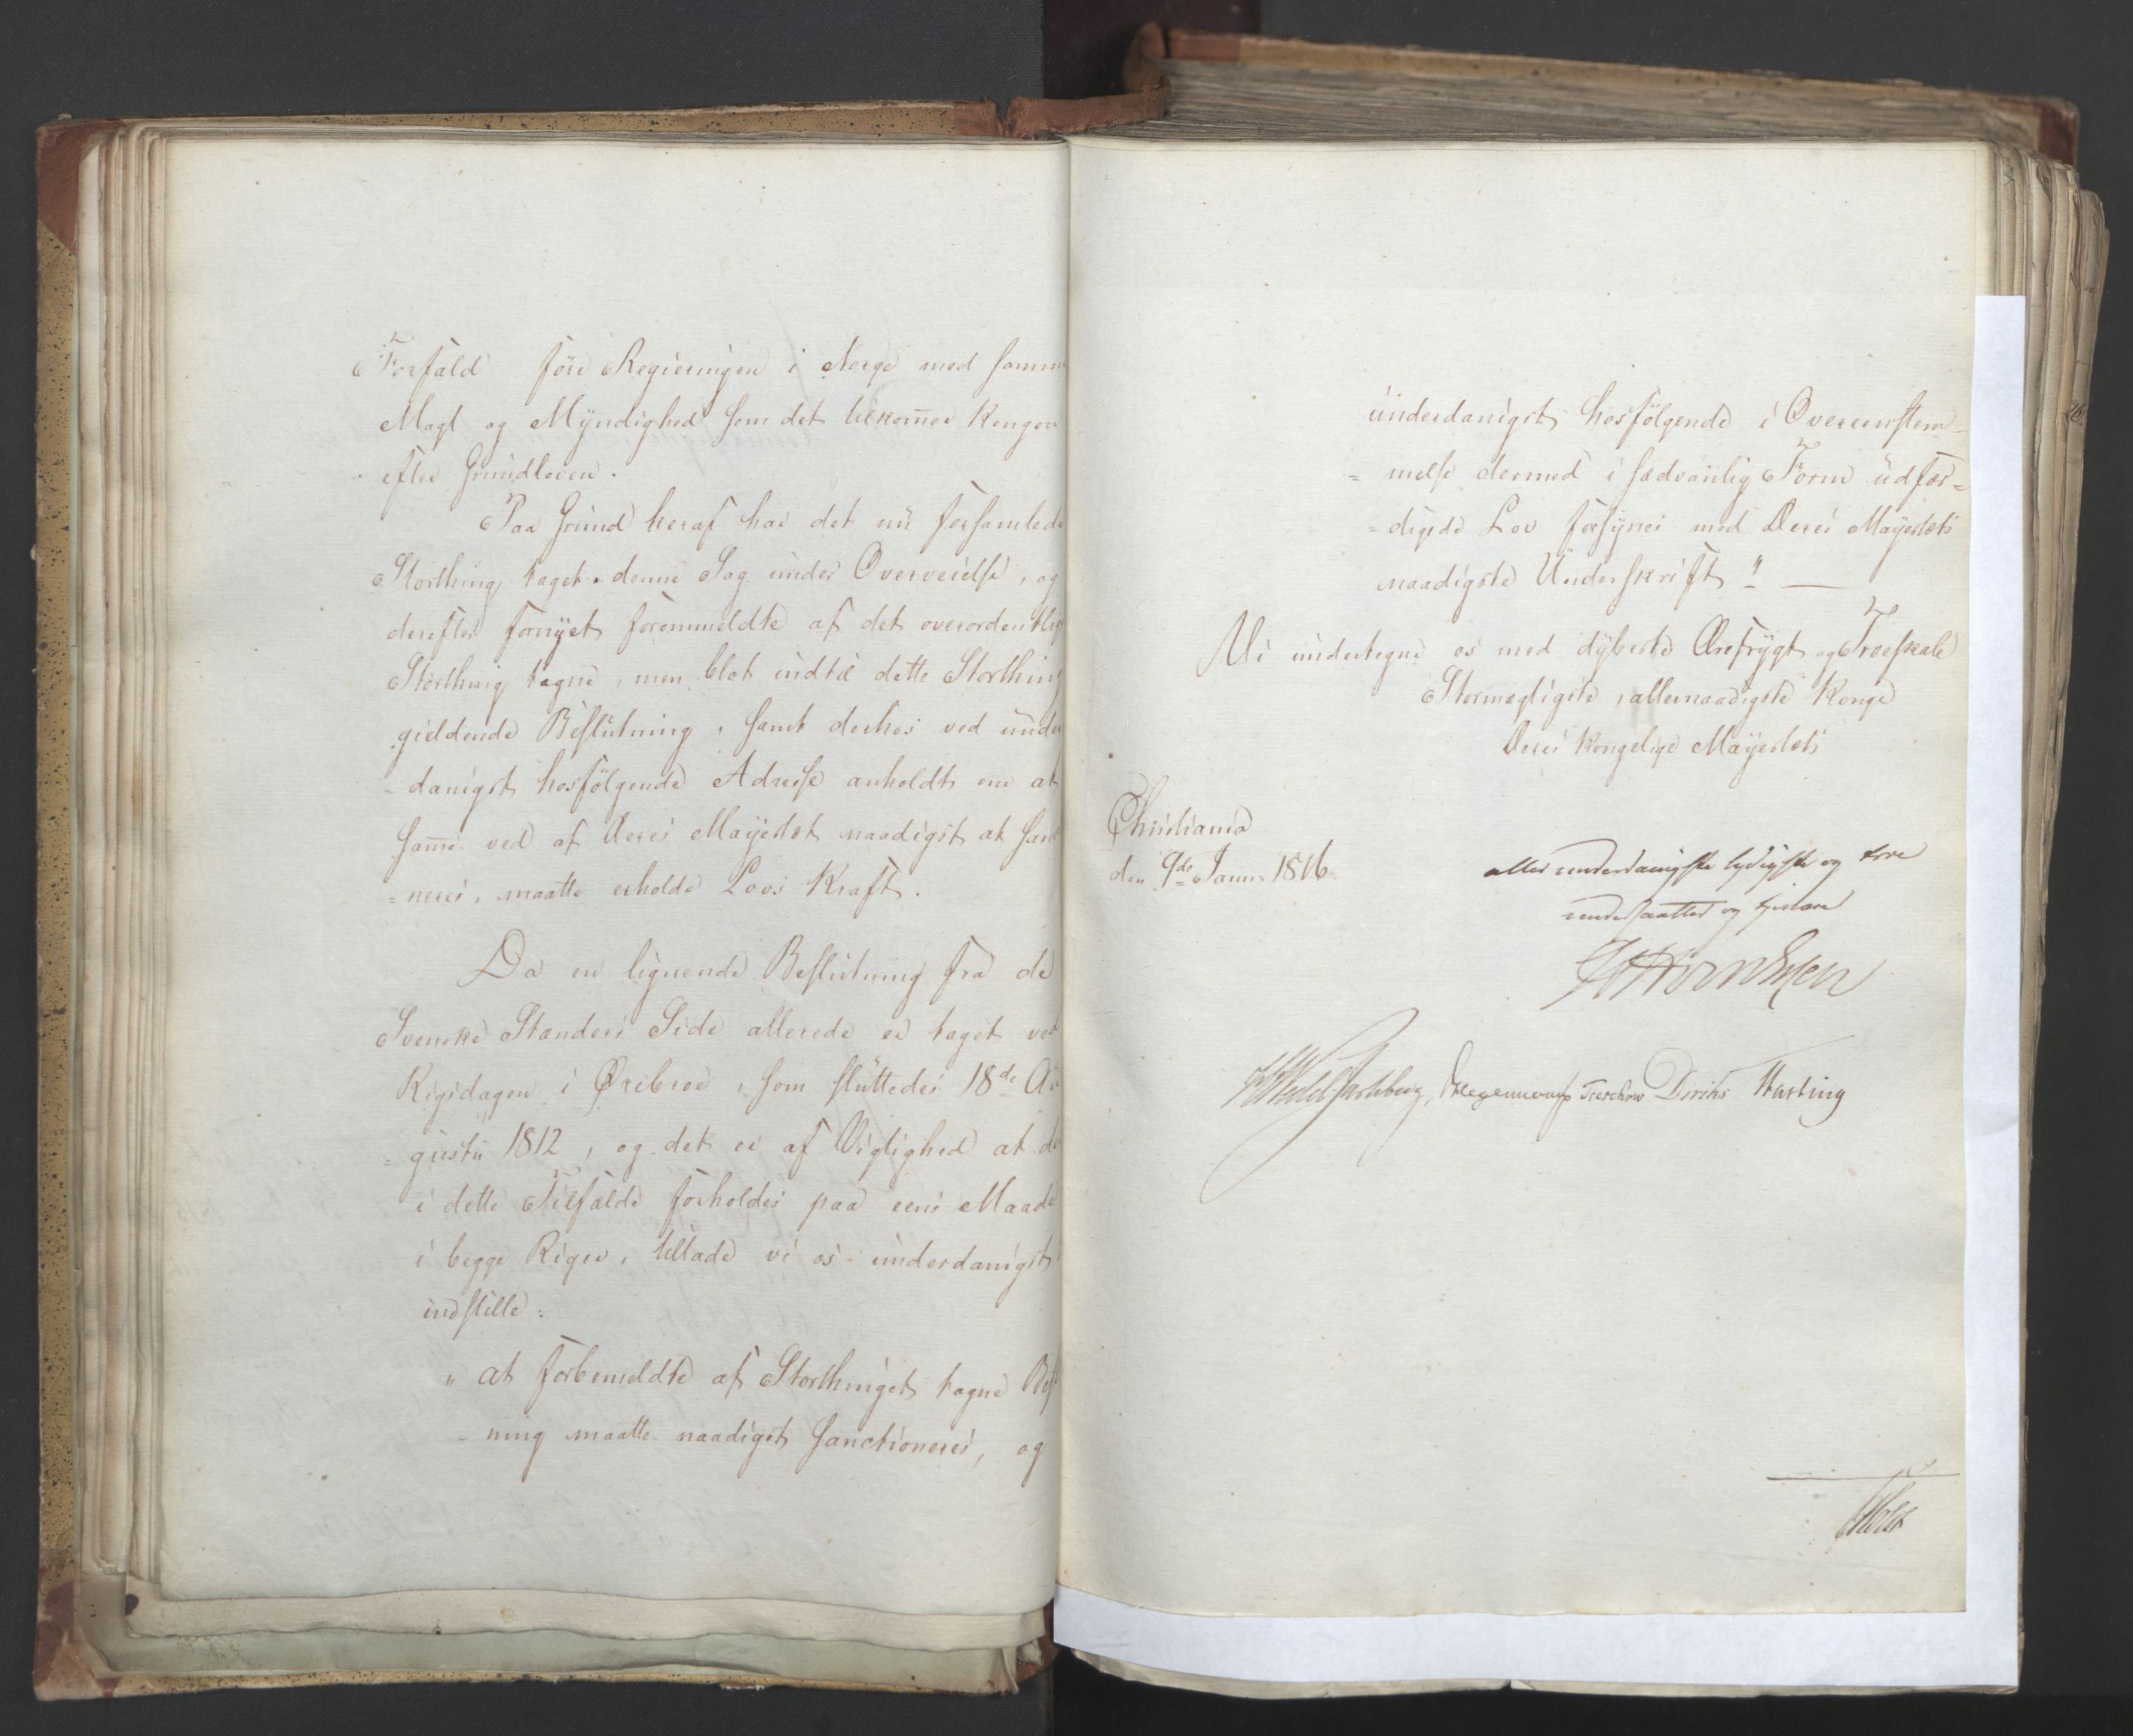 Forfald före Regieringen i Norge med samme
Magt og Myndighed som det tilkom̅er Kongen
efter Grundloven.
Paa Grund heraf har det nu forsamlede
Storthing taget denne Sag under Overveielse, og
derefter fornyet foranmeldte af det overordentlige
Storthing tagne, men blot indtil dette Storthing
gieldende Beslutning, samt derhos ved under
-danigst hosfölgende Adresse anholdt om at
sam̅e ved af Deres Mayestæt naadigst at sanc
=neres, maatte erholde Lovs Kraft.
Da en lignende Beslutning fra de
Svenske Stænders Side allerede er taget ved
Rigsdagen i Örebroe, som sluttedes 18de Au
=gustii 1812, og det er af Vigtighed at de
i dette Tilfælde forholdes paa eens Maade
i begge Riger, tillade vi os underdanigst
indstille:
" at forbemeldte af Storthinget tagne Besl
ning maatte naadigst sanctioneres, og
underdanigst hosfölgende i Overeenstem-
=melse dermed i sædvanlig Form udfær=
=digede Lov forsynes med Deres Mayestæts
naadigste Underskrift" —
Vi undertegne os med dybeste Ærefrygt og Troeskab
Stormægtigste, allernaadigste Konge
Deres Kongelige Mayestæts
Christiania
den 9de Januar 1816.
aller underdanigste lydigste og troe
undersaatter og tjenere
Wedel Jarlsberg, Hegermann Treschow Diriks Hasting
Holst